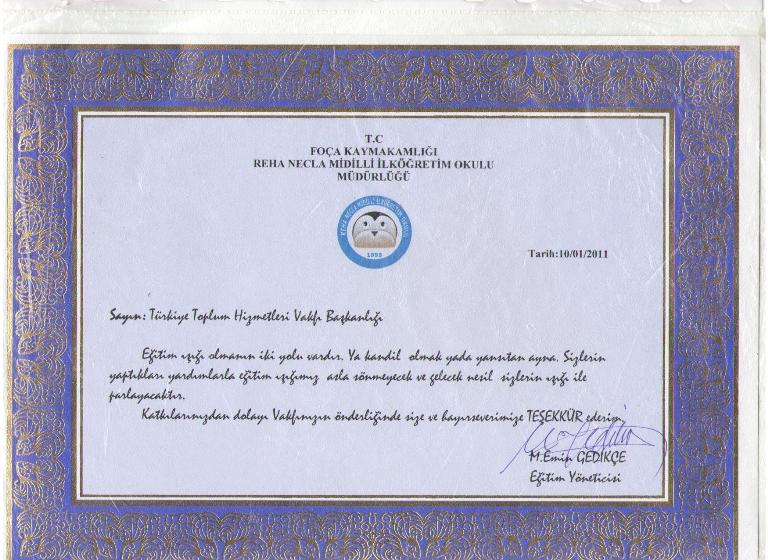 T.C
FOÇA KAYMAKAMLIĞI
REHA NECLA MİDİLLİ İLKÖĞRETİM OKULU
MÜDÜRLÜĞÜ
REHA NECLA MİDİLLİ İLKÖĞRETİM OKULU
1998
Tarih:10/01/2011
Sayın: Türkiye Toplum Hizmetleri Vakfı Başkanlığı
Eğitim ışığı olmanın iki yolu vardır. Ya kandil olmak yada yansıtan ayna. Sizlerin
yaptıkları yardımlarla eğitim ışığımız asla sönmeyecek ve gelecek nesil sizlerin ışığı ile
parlayacaktır.
Katkılarımızdan dolayı Vakfınızın önderliğinde size ve hayırseverimize TEŞEKKÜR ederim.
M.Emin GEDİKÇE
Eğitim Yöneticisi